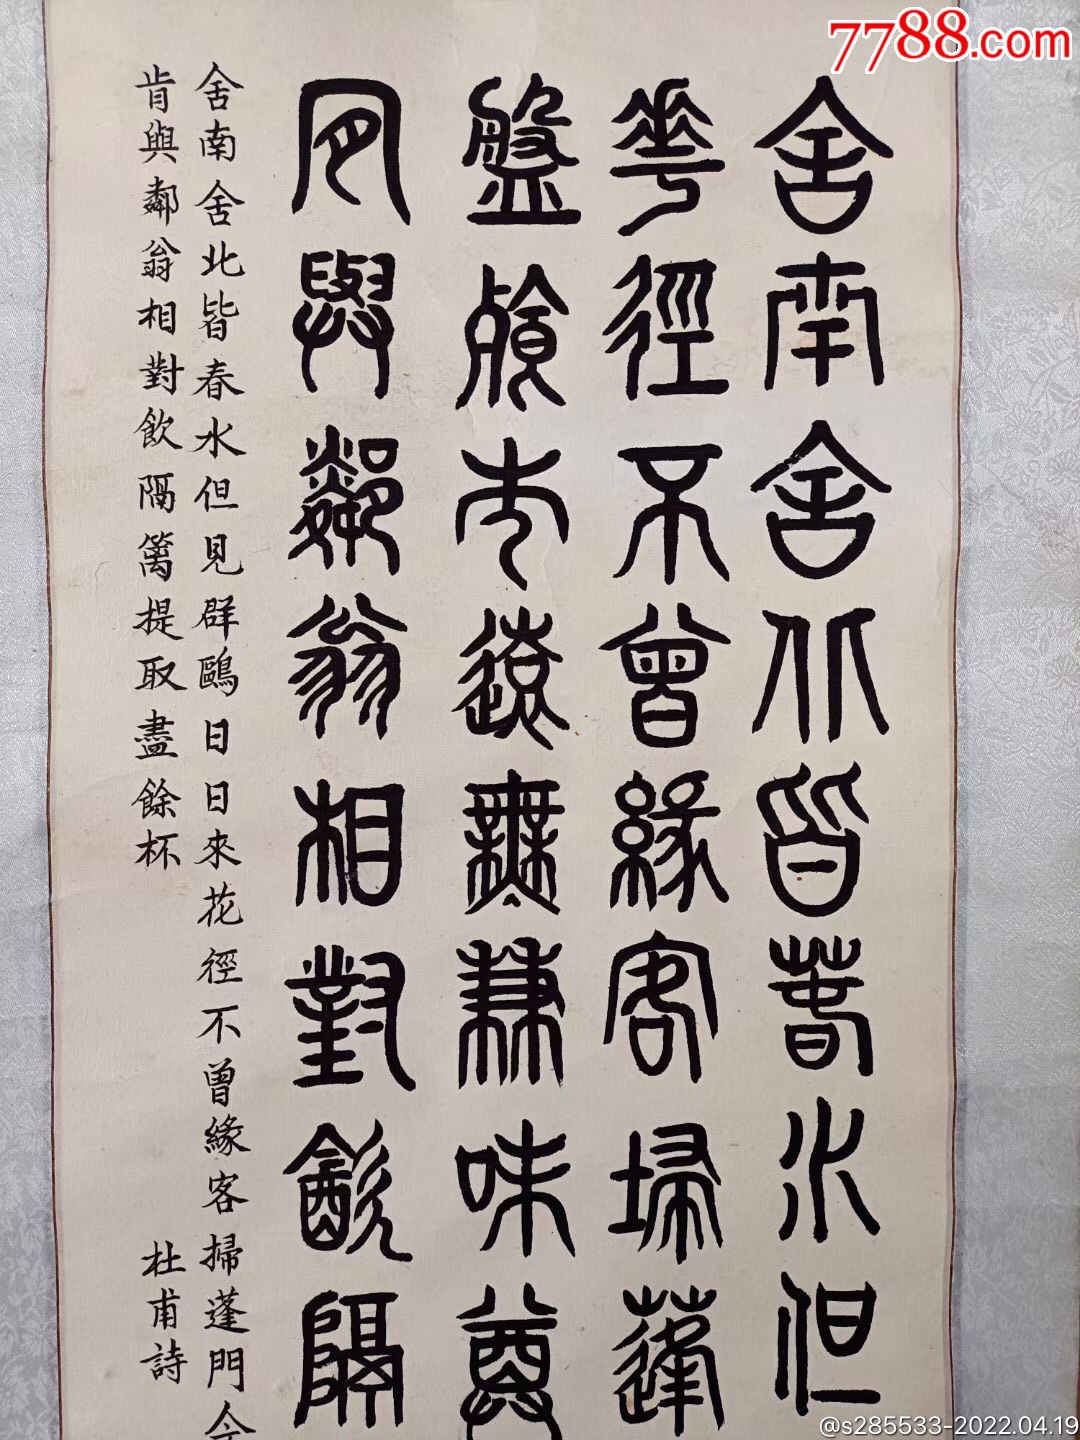 舍南舍北皆春水但
花徑不曾緣客埽蓬
盤飧市遠無兼味尊
肎與鄰翁相對飲隔
舍南舍北皆春水但見群鷗日日來花徑不曾緣客掃蓬門今
肯與鄰翁相對飲隔籬提取盡餘杯
杜甫詩
7788.com
@s285533-2022.04.19